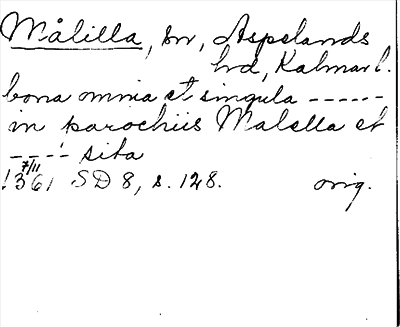 Målilla, sn, Aspelands
hd, Kalmar l.
bona omnia et singula ------
in parochiis Malella et
---- sita
7/11
1361 SD 8, s. 128. orig.